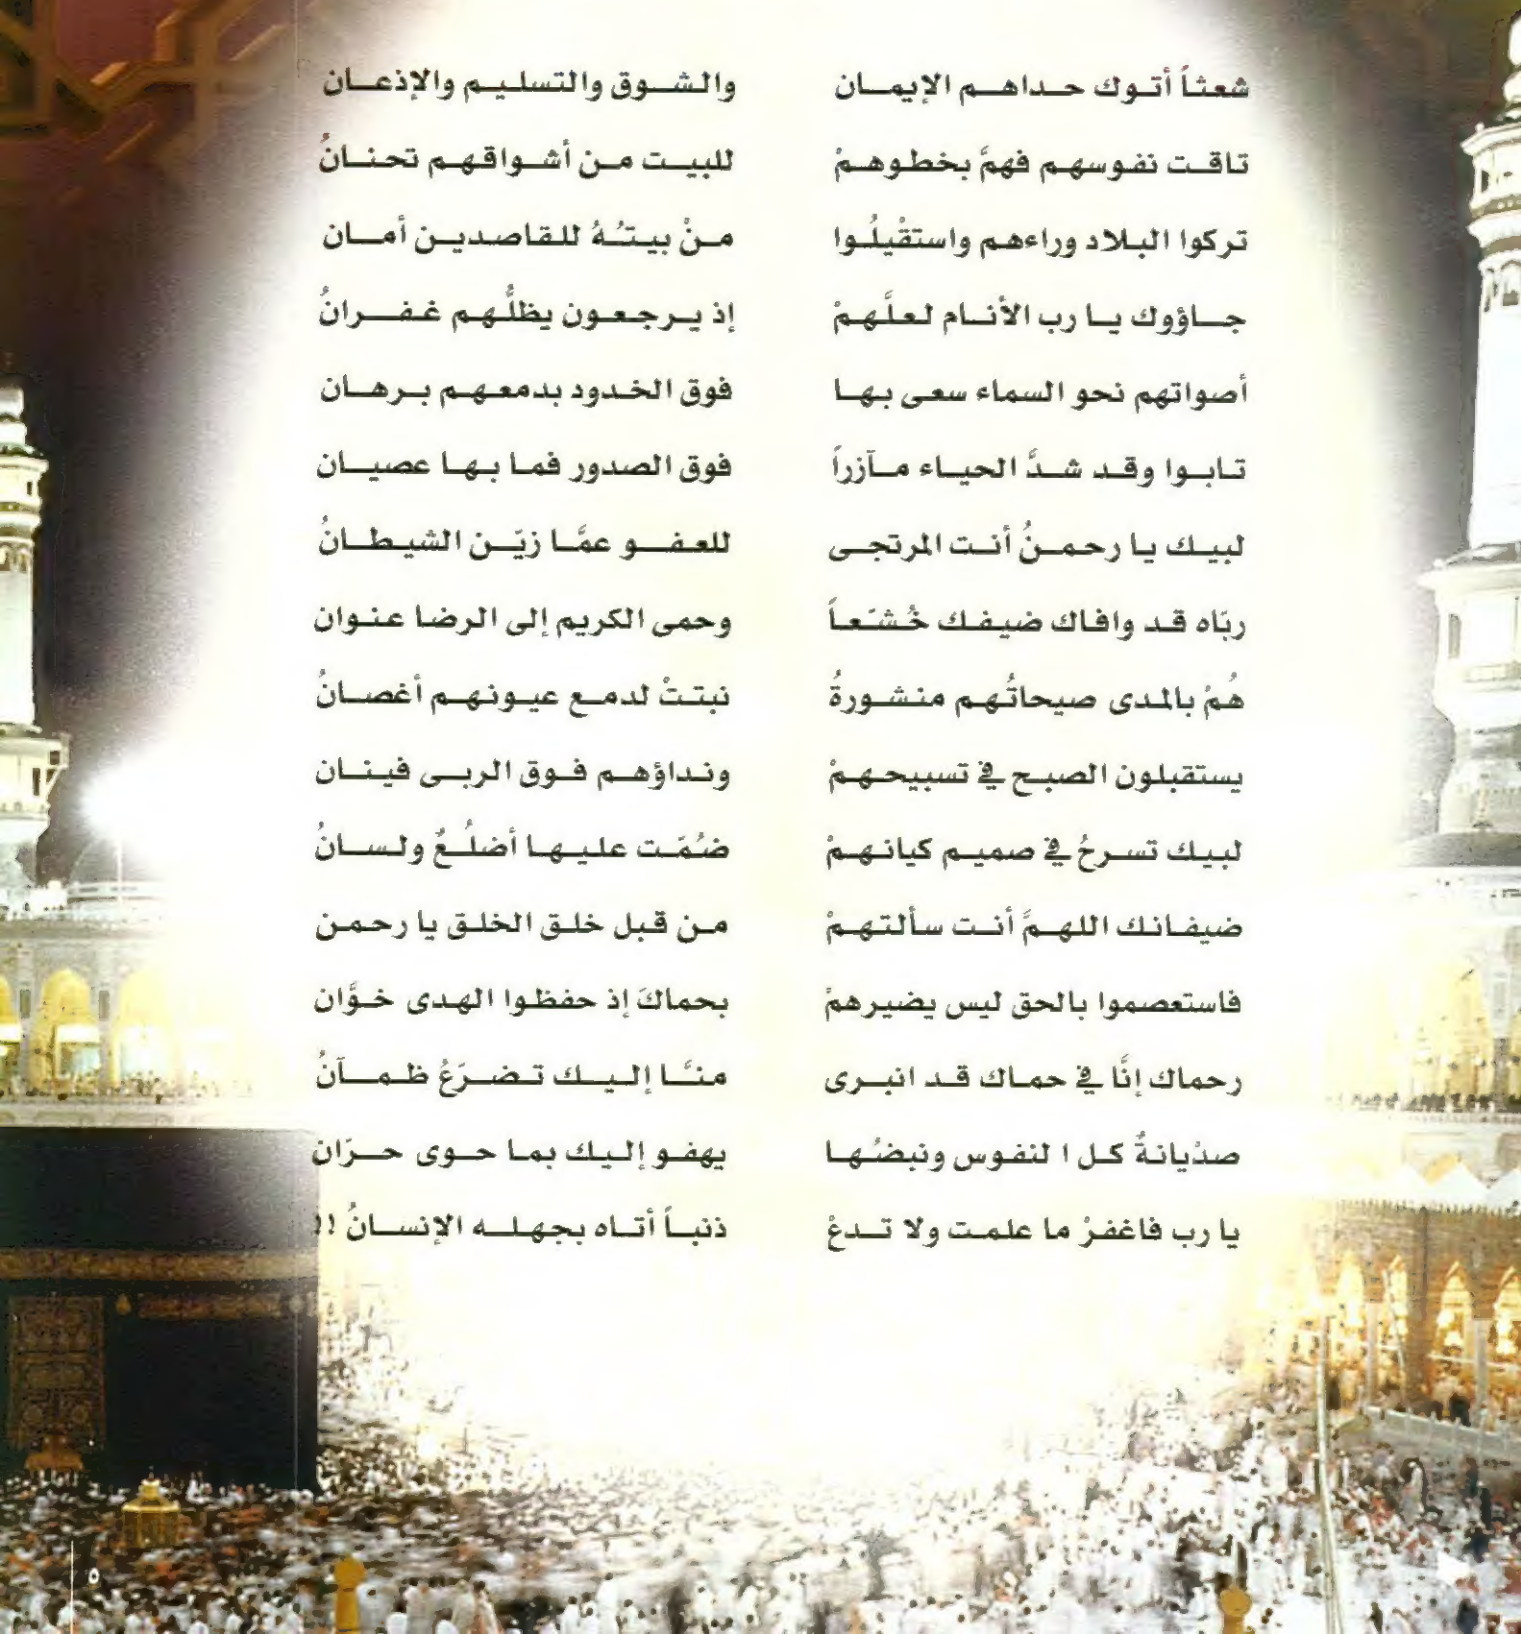 شعثاً أتوك حداهم الإيمان والشوق والتسليم والإذعان
تاقت نفوسهم فهمَّ بخطوهمْ للبيت من أشواقهم تحنانُ
تركوا البلاد وراءهم واستقْيلُوا منْ بيتُهُ للقاصدين أمان
جاؤوك يا رب الأنام لعلَّهمْ إذ يرجعون يظلُّهم غفرانُ
أصواتهم نحو السماء سعى بها فوق الخدود بدمعهم برهان
تابوا وقد شدَّ الحياء مآزراً فوق الصدور فما بها عصيان
لبيك يا رحمنُ أنت المرتجى للعفو عمَّا زيّن الشيطانُ
ربّاه قد وافاك ضيفك خُشّعاً وحمى الكريم إلى الرضا عنوان
هُمْ بالمدى صيحاتُهم منشورةُ نبتتْ لدمع عيونهم أغصانُ
يستقبلون الصبح في تسبيحهمْ ونداؤهم فوق الربى فينان
لبيك تسرحُ في صميم كيانهمْ ضُمّت عليها أضلُعٌ ولسانُ
ضيفانك اللهمَّ أنت سألتهمْ من قبل خلق الخلق يا رحمن
فاستعصموا بالحق ليس يضيرهمْ بحماكَ إذ حفظوا الهدى خوَّان
رحماك إنَّا في حماك قد انبرى منَّا إليك تضرّعُ ظمآنُ
صدْيانةٌ كل ا لنفوس ونبضُها يهفو إليك بما حوى حرّان
يا رب فاغفرْ ما علمت ولا تدعْ ذنباً أتاه بجهله الإنسانُ !!
٥